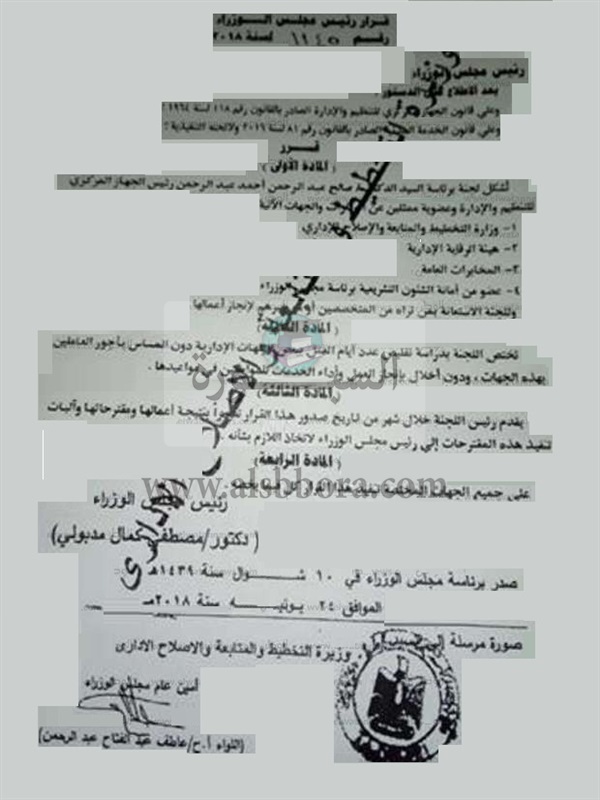 قرار رئيس مجلس الوزراء
رقم ١١٤٥ لسنة ٢٠١٨
رئيس مجلس الوزراء
بعد الاطلاع على الدستور
وعلى قانون الجهاز المركزي للتنظيم والإدارة الصادر بالقانون رقم ١١٨ لسنة ١٩٦٤
وعلى قانون الخدمة المدنية الصادر بالقانون رقم ٨١ لسنة ٢٠١٦ ولائحته التنفيذية ؛
قرر
( المادة الأولى )
تُشكل لجنة برئاسة السيد الدكتور صالح عبد الرحمن أحمد عبد الرحمن رئيس الجهاز المركزي
للتنظيم والإدارة وعضوية ممثلين عن والجهات الآتية
١- وزارة التخطيط والمتابعة والإصلاح الإداري.
٢- هيئة الرقابة الإدارية
٣- المخابرات العامة
٤- عضو من أمانة الشئون التشريعية برئاسة مجلس الوزراء
وللجنة الاستعانة بمن تراه من المتخصصين أو غيرهم لإنجاز أعمالها
( المادة الثانية )
تختص اللجنة بدراسة تقليص عدد أيام العمل ببعض الجهات الإدارية دون المساس بأجور العاملين
بهذه الجهات ، ودون إخلال بإنجاز العمل وأداء الخدمات للمواطنين في مواعيدها .
( المادة الثالثة )
يقدم رئيس اللجنة خلال شهر من تاريخ صدور هذا القرار تقريراً بنتيجة أعمالها ومقترحاتها وآليات
تنفيذ هذه المقترحات إلى رئيس مجلس الوزراء لاتخاذ اللازم بشأنه .
( المادة الرابعة )
على جميع الجهات المختصة تنفيذ هذا القرار كل فيما يخصه
www.alsbbora.com
السبورة
رئيس مجلس الوزراء
( دكتور/مصطفى كمال مدبولي )
صدر برئاسة مجلس الوزراء في ١٠ شوال سنة ١٤٣٩هـ
الموافق ٢٤ يونيه سنة ٢٠١٨مـ
صورة مرسلة إلى وزيرة التخطيط والمتابعة والاصلاح الادارى
أمين عام مجلس الوزراء
(اللواء أ.ح/عاطف عبد الفتاح عبد الرحمن)